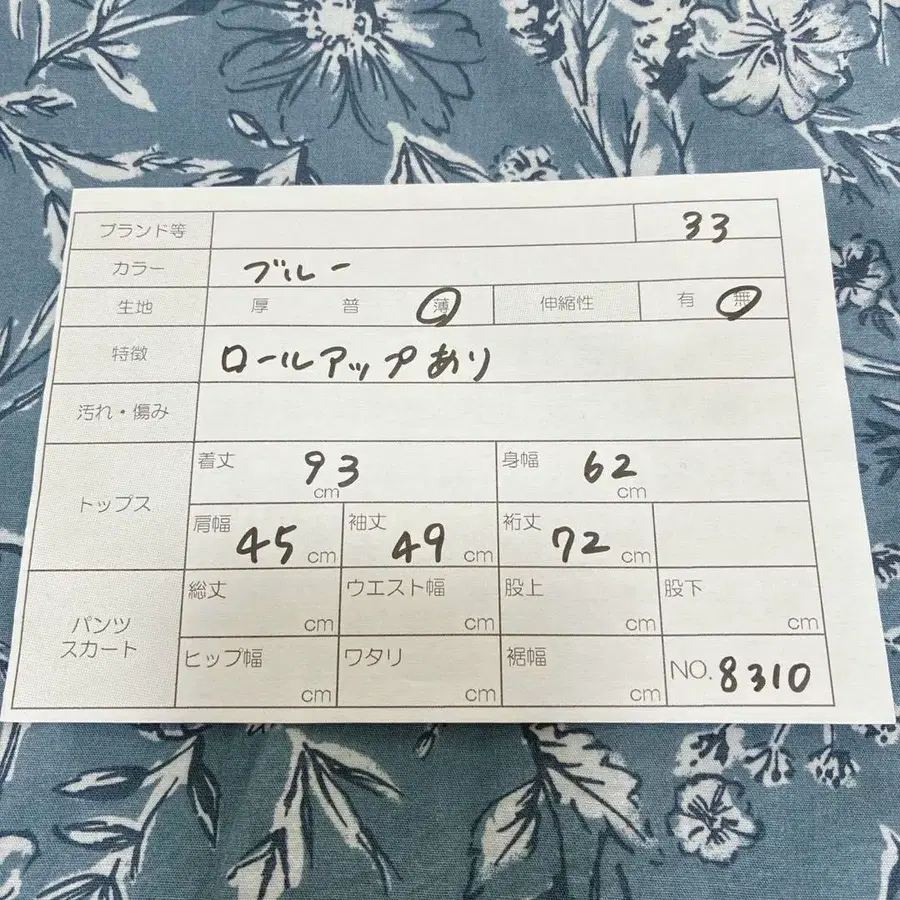 ブランド等 33
カラー ブルー
生地 厚 普 薄 伸縮性 有 無
特徴 ロールアップあり
汚れ・傷み
トップス
着丈 93 cm 身幅 62 cm
肩幅 45 cm 袖丈 49 cm 裄丈 72 cm
パンツ
スカート
総丈 cm ウエスト幅 cm 股上 cm 股下 cm
ヒップ幅 cm ワタリ cm 裾幅 cm NO. 8310